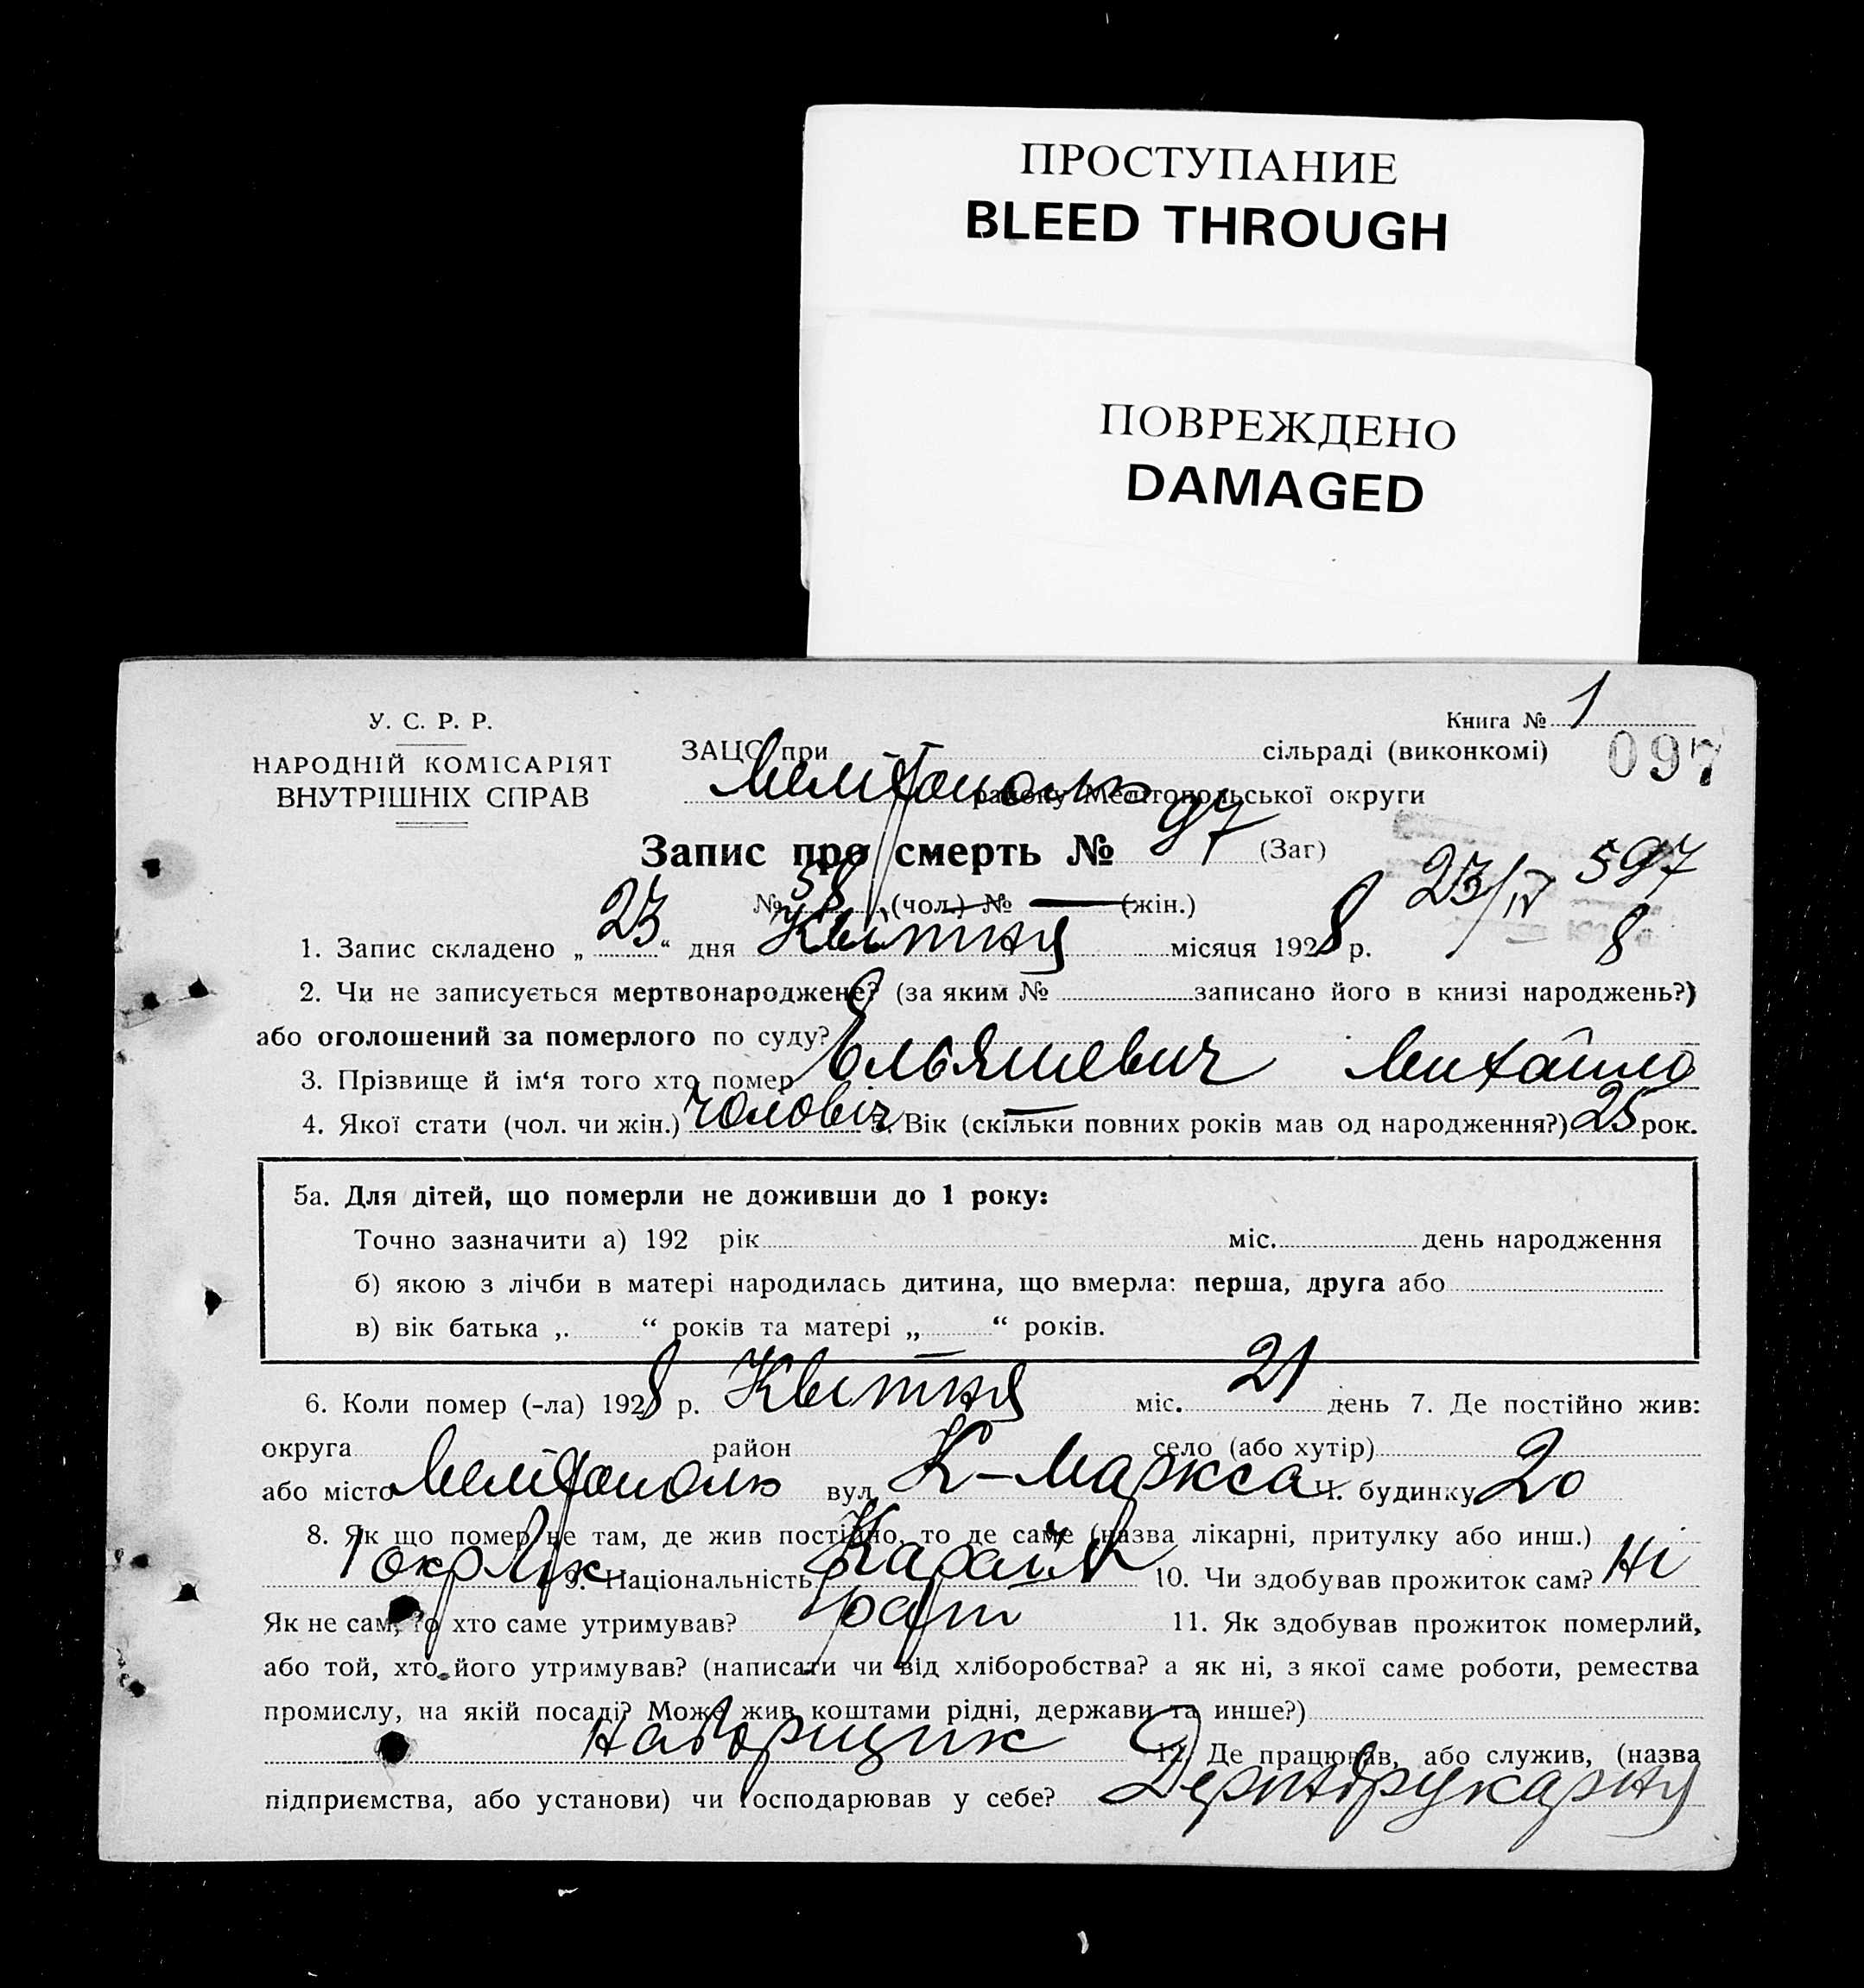 ПРОСТУПАНИЕ
BLEED THROUGH
ПОВРЕЖДЕНО
DAMAGED
У. С. Р. Р.
НАРОДНІЙ КОМІСАРІЯТ
ВНУТРІШНІХ СПРАВ
Книга № 1
097
ЗАЦС при сільраді (виконкомі)
Мелітополь району Мелітопольської округи
Запис про смерть № 97 (Заг)
№ 58 (чол.) № (жін.)
23/IV 597
8
1. Запис складено „ 23 “ дня Квітня місяця 1928 р.
2. Чи не записується мертвонароджене? (за яким № записано його в книзі народжень?)
або оголошений за померлого по суду?
3. Прізвище й ім‘я того хто помер Ельяшевич Михайло
4. Якої стати (чол. чи жін.) чоловіч 5. Вік (скільки повних років мав од народження?) 25 рок.
5а. Для дітей, що померли не доживши до 1 року:
Точно зазначити а) 192 рік міс. день народження
б) якою з лічби в матері народилась дитина, що вмерла: перша, друга або
в) вік батька „ “ років та матері „ “ років.
6. Коли помер (-ла) 1928 р. Квітня міс. 21 день 7. Де постійно жив:
округа район село (або хутір)
або місто Мелітополь вул. К-Маркса Ч. будинку 20
8. Як що помер не там, де жив постійно, то де саме (назва лікарні, притулку або инш.)
1 окрлік 9. Національність Караїм 10. Чи здобував прожиток сам? Ні
Як не сам, то хто саме утримував? брат 11. Як здобував прожиток померлий,
або той, хто його утримував? (написати чи від хліборобства? а як ні, з якої саме роботи, ремества
промислу, на якій посаді? Може жив коштами рідні, держави та инше?)
наборщик 12. Де працював, або служив, (назва
підприємства, або установи) чи господарював у себе?